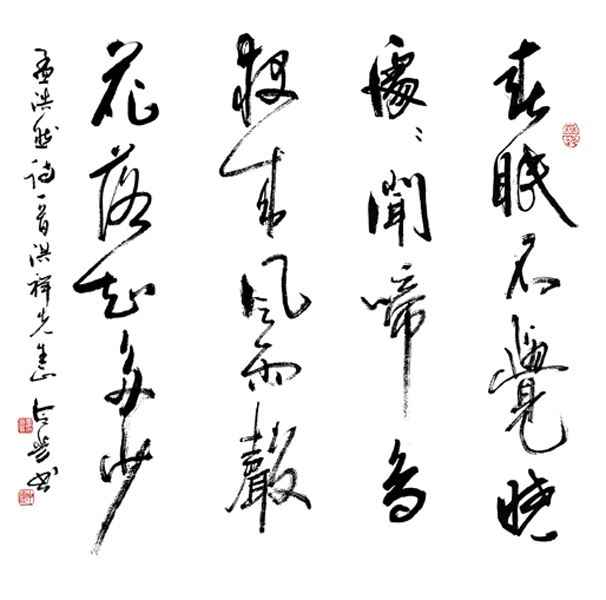 春眠不覺曉
處々聞啼鳥
夜来风雨聲
花落知多少
孟浩然诗一首洪祥先生正 书